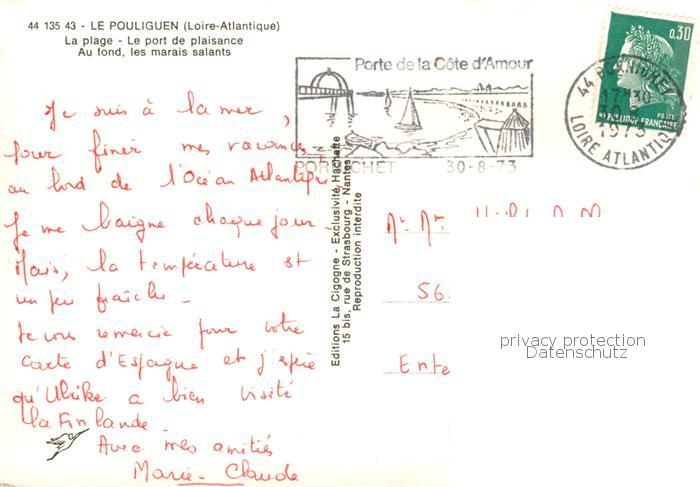 44 135 43 - LE POULIGUEN (Loire-Atlantique)
La plage - Le port de plaisance
Au fond, les marais salants
Je suis à la mer,
pour finir mes vacances
au bord de l'Océan Atlantique
Je me baigne chaque jour.
Mais, la température est
un peu fraîche -
Je vous remercie pour votre
carte d'Espagne et j'espère
qu'Ulrike a bien visité
la Finlande.
Avec mes amitiés
Marie-Claude
Editions La Cigogne - Exclusivité Hachette
15 bis, rue de Strasbourg - Nantes
Reproduction interdite
Porte de la Côte d'Amour
PORNICHET 30-8-73
44 PORNICHET
17H30
30-8
1973
LOIRE ATLANTIQUE
0,30
POSTES
REPUBLIQUE FRANÇAISE
56
privacy protection
Datenschutz